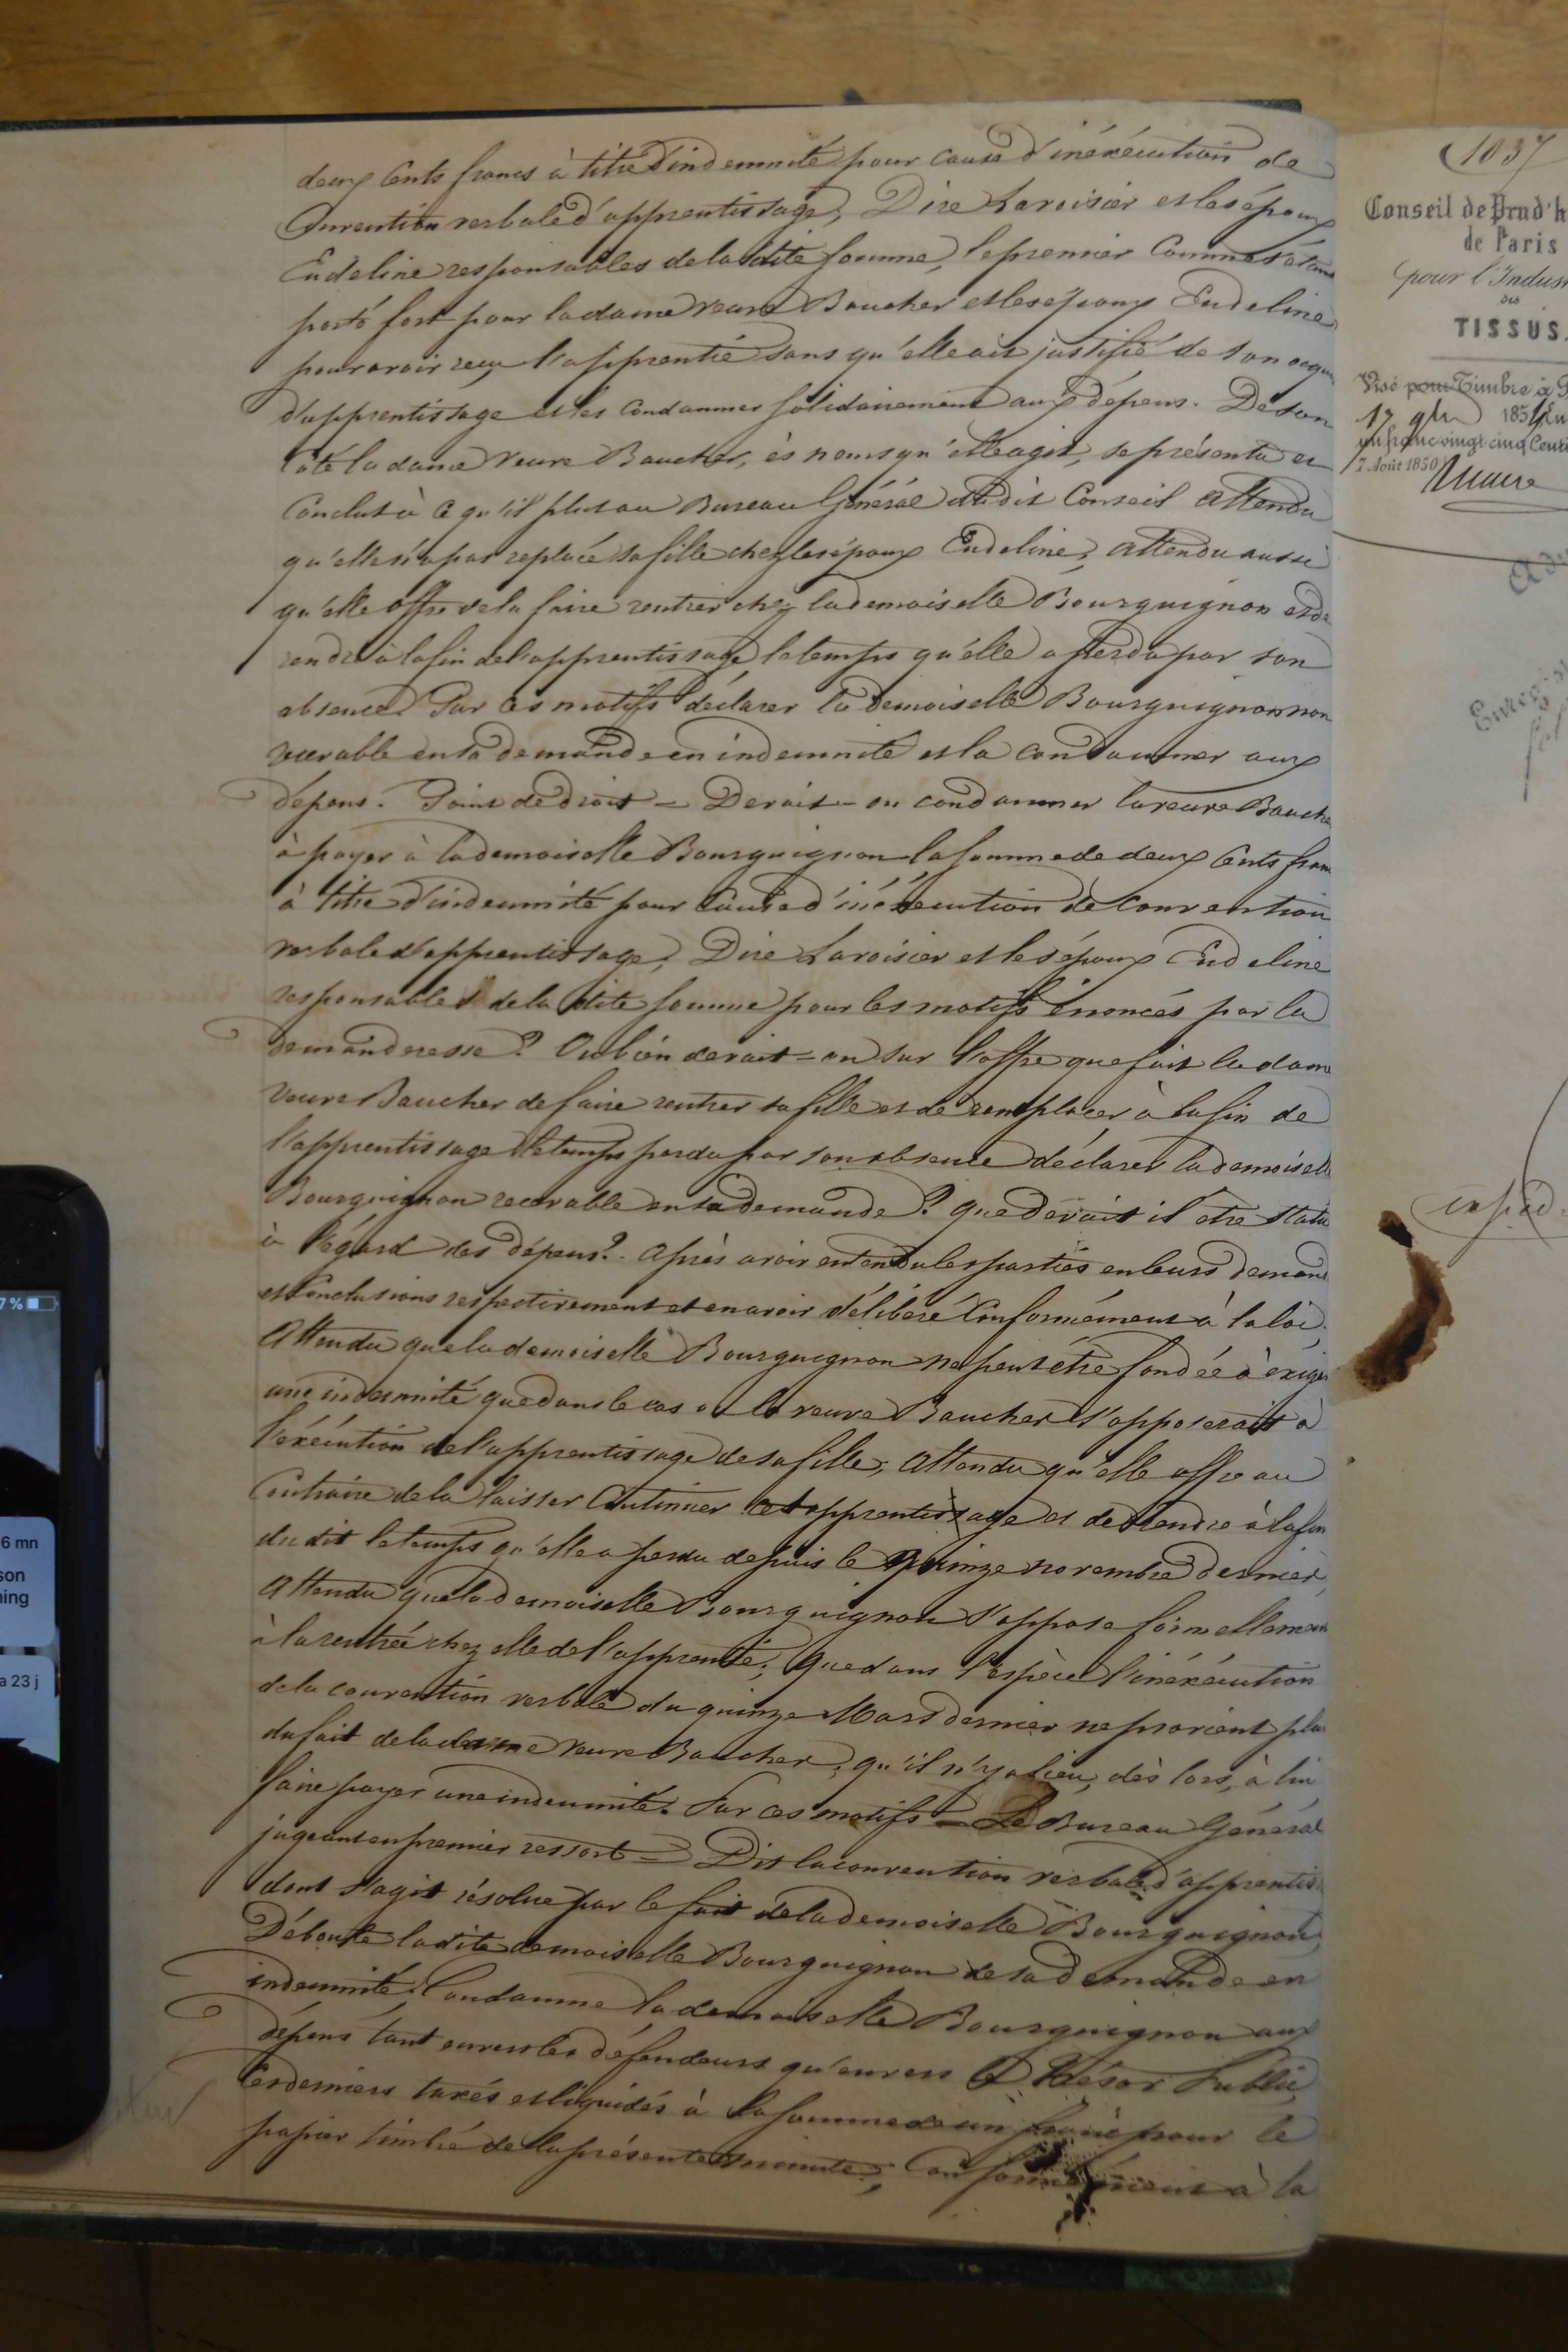 deux cents francs à titre d'indemnité pour cause d'inéxécution de
Convention verbale d'apprentissage, Dire Lavoisier et les époux
Eudeline responsables de la dite somme, le premier comme s'étant
porté fort pour la dame veuve Baucher et les époux Eudeline
pour avoir reçu l'apprentie sans qu'elle ait justifié de son
d'apprentissage et les condamner solidairement aux dépens. De son
côté la dame veuve Baucher, ès noms qu'elle agit, se présenta et
conclut à ce qu'il plut au Bureau Général du dit Conseil attendu
qu'elle n'a pas replacé sa fille chez les époux Eudeline, attendu aussi
qu'elle offre de la faire rentrer chez la demoiselle Bourguignon et de
rendre à la fin de l'apprentissage le temps qu'elle a perdu par son
absence. Par ces motifs déclarer la demoiselle Bourguignon non
recevable en sa demande en indemnité et la condamner aux
dépens. Point de droit = Devait-on condamner la veuve Baucher
à payer à la demoiselle Bourguignon la somme de deux cents franc
à titre d'indemnité pour cause d'inéxécution de convention
verbale d'apprentissage, Dire Lavoisier et les époux Eudeline
responsables de la dite somme pour les motifs énoncés par la
demanderesse? Ou bien devait-on sur l'offre que fait la dame
veuve Baucher de faire rentrer sa fille et de remplacer à la fin de
l'apprentissage le temps perdu par son absence déclarer la demoiselle
Bourguignon recevable en sa demande? Que devait il être statué
à l'égard des dépens? Après avoir entendu les parties en leurs demandes
et conclusions respectivement et en avoir délibéré conformément à la loi;
Attendu que la demoiselle Bourguignon ne peut être fondée à exiger
une indemnité que dans le cas où la veuve Baucher s'opposerait à
l'éxécution de l'apprentissage de sa fille; Attendu qu'elle offre au
contraire de la laisser continuer cet apprentissage et de rendre à la fin
du dit le temps qu'elle a perdu depuis le quinze novembre dernier;
Attendu que la demoiselle Bourguignon s'oppose formellement
à la rentrée chez elle de l'apprentie; que dans l'espèce l'inéxécution
de la convention verbale du quinze Mars dernier ne provient plus
du fait de la dame veuve Baucher; qu'il n'y a lieu, dès lors, à lui
faire payer une indemnité. Par ces motifs = Le Bureau Général
jugeant en premier ressort = Dit la convention verbale d'apprentiss
dont s'agit résolue par le fait de la demoiselle Bourguignon;
Déboute la dite demoiselle Bourguignon de sa demande en
indemnité; Condamne la demoiselle Bourguignon aux
dépens tant envers les défendeurs qu'envers le Trésor Public,
ces derniers taxés et liquidés à la somme de un franc pour le
papier timbré de la présente minute, conformément à la
1037
Conseil de Prud'h
de Paris
pour l'Indus
DES
TISSUS.
Visé pour Timbre à P
17 9bre 1854
un franc vingt-cinq Centi
7 Août 1850
7%
6 mn
son
ning
a 23 j